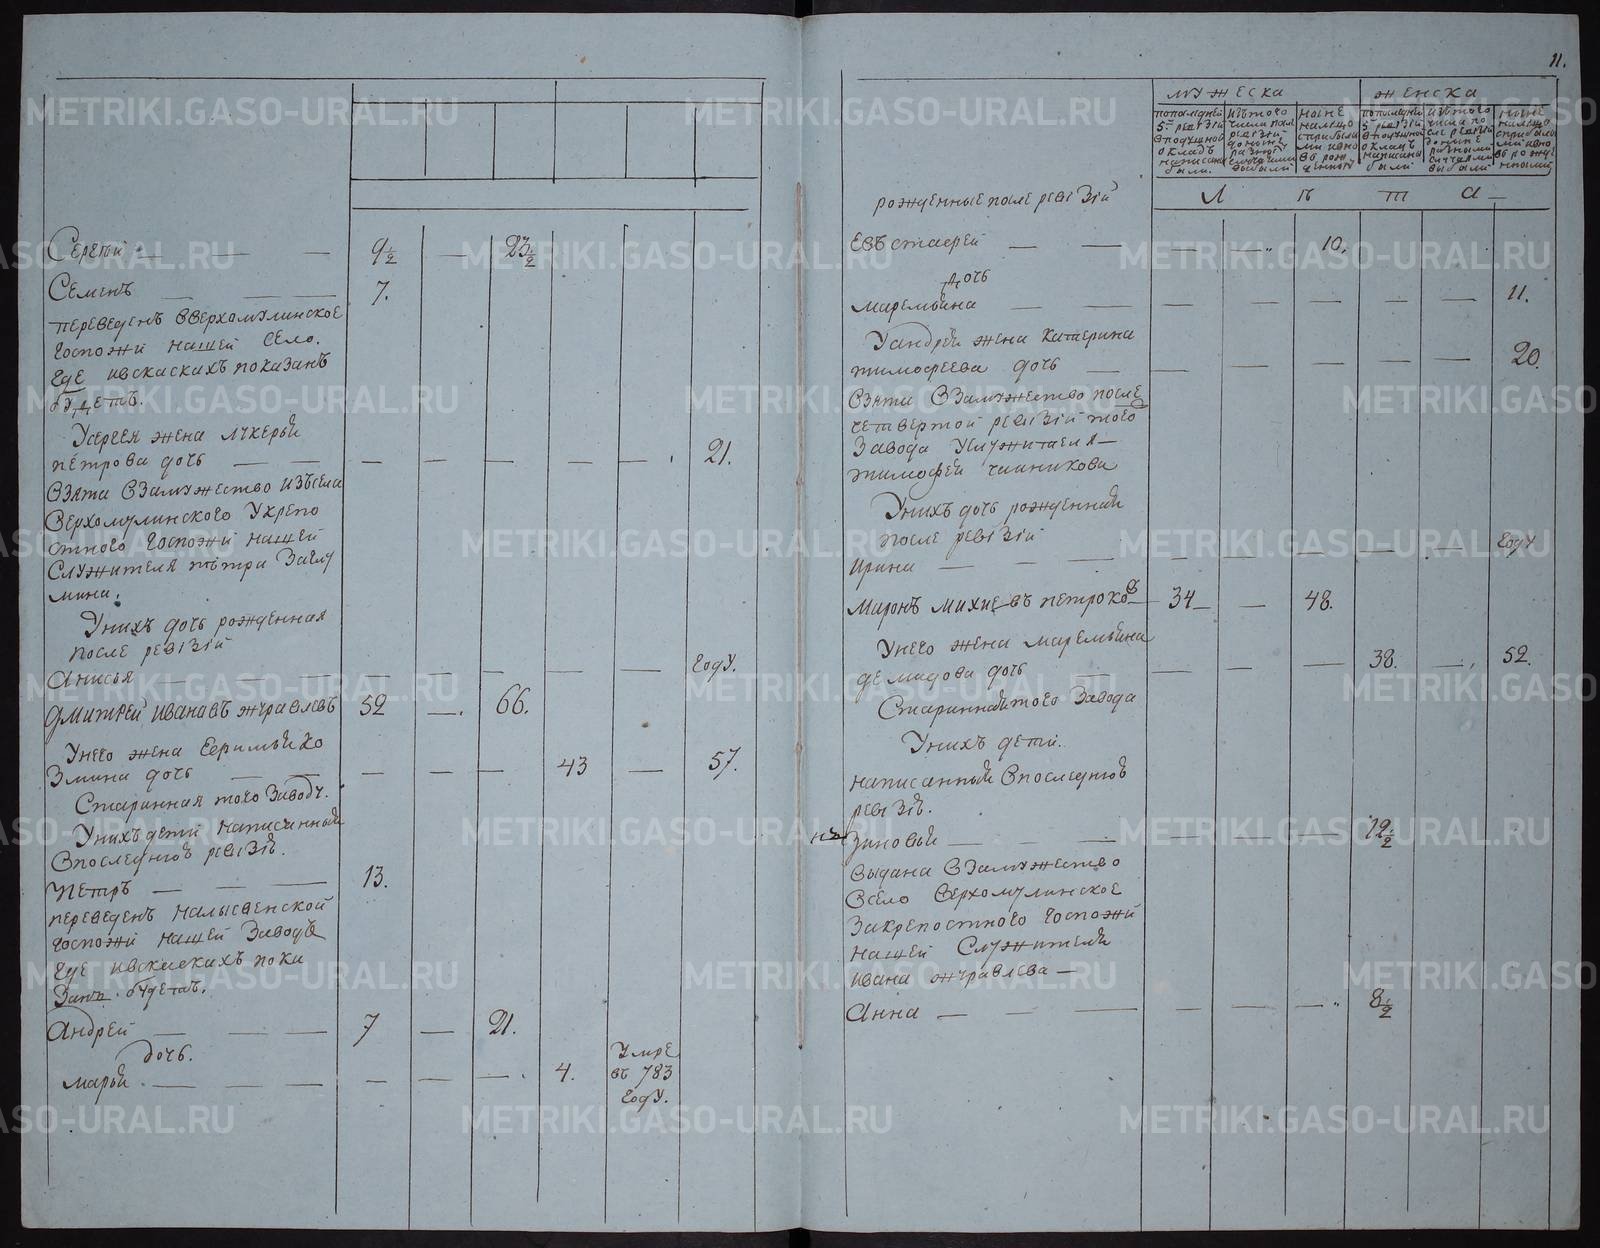 Сергѣй — — — 9½ — 23½
Семенъ — — — 7.
переведенъ вверхомулинское
госпожи нашей село.
где ивскаскахъ показанъ
будетъ.
Усергея жена лукерьи
петрова дочь — — — — — — — 21.
взята взамужество изъсела
верхомулинского укрепо
стного госпожи нашей
служителя петра
мина.
Унихъ дочь рожденная
после ревiзiи
Анисья — — — — — годУ.
Дмитреи ивановъ журавлевъ 52 — 66.
Унего жена
Змина дочь — — — — — 43 — 57.
Старинная того заводу.
Унихъ дети написанныи
впоследнюю ревiзiю.
Петръ — — — 13.
переведенъ налысвенской
госпожи нашей заводъ
где ивскаскахъ пока
занъ будетъ.
Андрей — — — 7 — 21.
дочь.
марьи — — — — — — 4. умре
въ 783
годУ.
11.
мужеска женска
попоследней
5й ревiзiи
вподушной
окладъ
написаны
были.
изтого
числа после
ревiзiи
доныне
разными
случаями
выбыли
ныне
налицо
сприбылы
ми ивно
въ рож
денныи
попоследней
5й ревiзiи
вподушной
окладъ
написаны
были
изтого
числа по
сле ревiзiи
доныне
разными
случаями
выбыли
ныне
налицо
сприбылы
ми ивно
въ рожде
нными
рожденные после ревiзiй Л ѣ т а —
Евъстафей — — — — 10.
дочь
маремьяна — — — — — — — — 11.
Уандрея жена катерина
тимофеева дочь — — — — — — 20.
взята взамужество после
четвертой ревiзiй того
завода Услужителя —
тимофея
Унихъ дочь рожденная
после ревiзiй
ирина — — — — — — — — годУ
миронъ михѣевъ петроковъ 34 — 48.
Унего жена маремьяна
демидова дочь — — — — 38. — 52.
Стариннаятого завода
Унихъ дети.
написанныи впоследнюю
ревiзiю.
зиновьи — — — — — — 12½
выдана взамужество
всело верхомулинское
закрепостного госпожи
нашей служителя
ивана журавлева —
Анна — — — — — — 8½